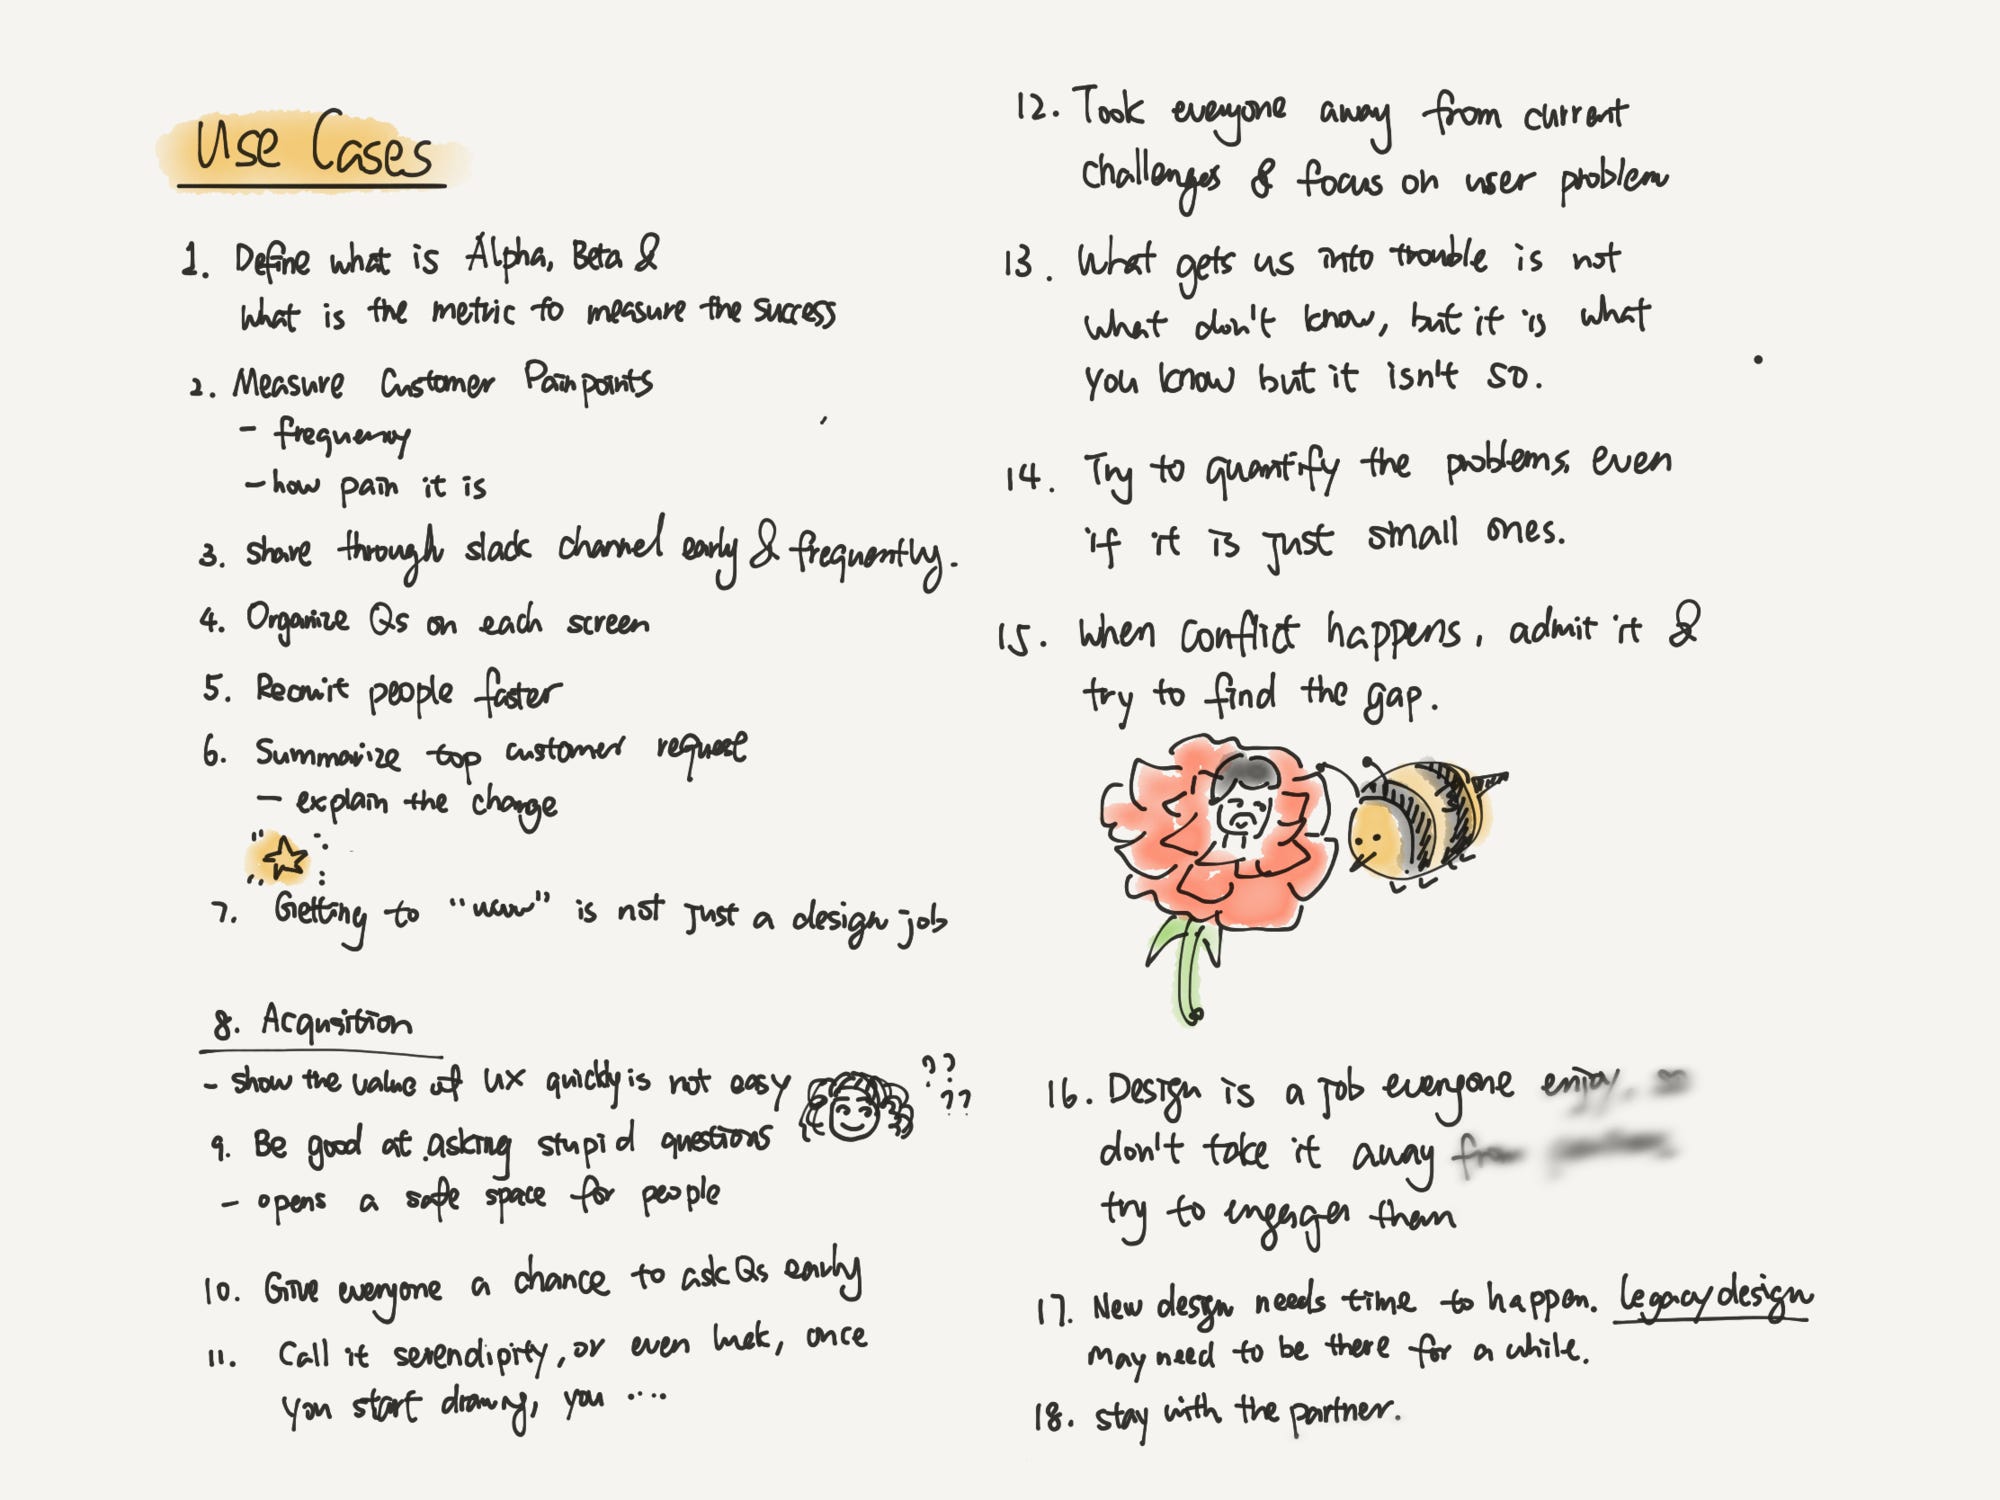 Use Cases
1. Define what is Alpha, Beta &
what is the metric to measure the success
2. Measure Customer Painpoints
- frequency
- how pain it is
3. share through slack channel early & frequently.
4. Organize Qs on each screen
5. Recruit people faster
6. Summarize top customer request
- explain the change
7. Getting to "wow" is not just a design job
8. Acqusition
- show the value of UX quickly is not easy
??
??
9. Be good at asking stupid questions
- opens a safe space for people
10. Give everyone a chance to ask Qs early
11. Call it serendipity, or even luck, once
you start drawing, you ....
12. Took everyone away from current
challenges & focus on user problem
13. What gets us into trouble is not
what don't know, but it is what
you know but it isn't so.
14. Try to quantify the problems, even
if it is just small ones.
15. when conflict happens, admit it &
try to find the gap.
16. Design is a job everyone enjoy,
don't take it away from
try to engage them
17. New design needs time to happen. legacy design
may need to be there for a while.
18. stay with the partner.